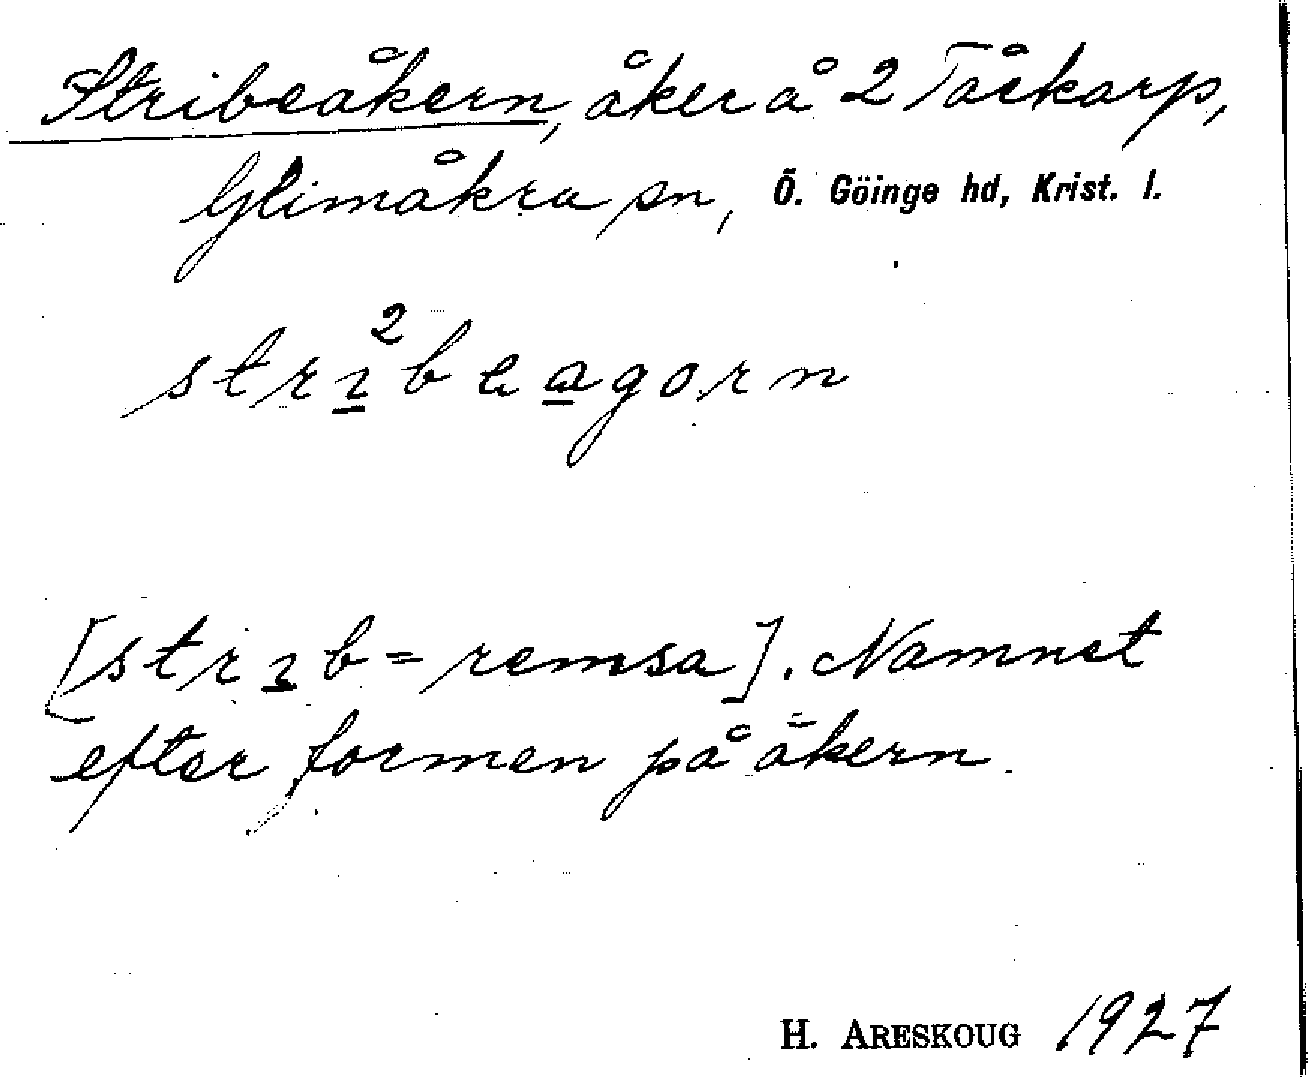 Stribeåkern, åker å 2 Tåskarp,
Glimåkra sn, Ö. Göinge hd, Krist. l.
strı²beagorn
[strıb = remsa]. Namnet
efter formen på åkern.
H. ARESKOUG 1927